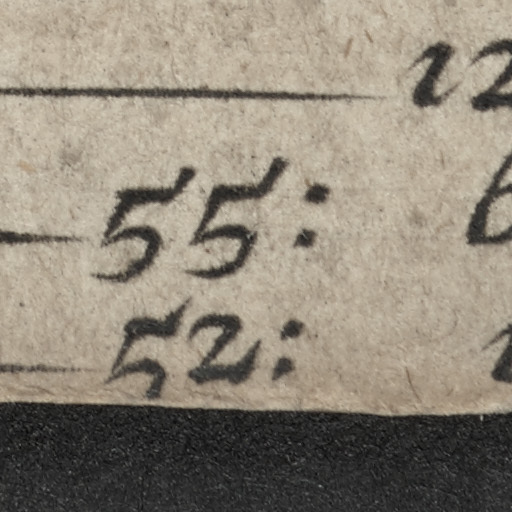 12
55: 6
52: